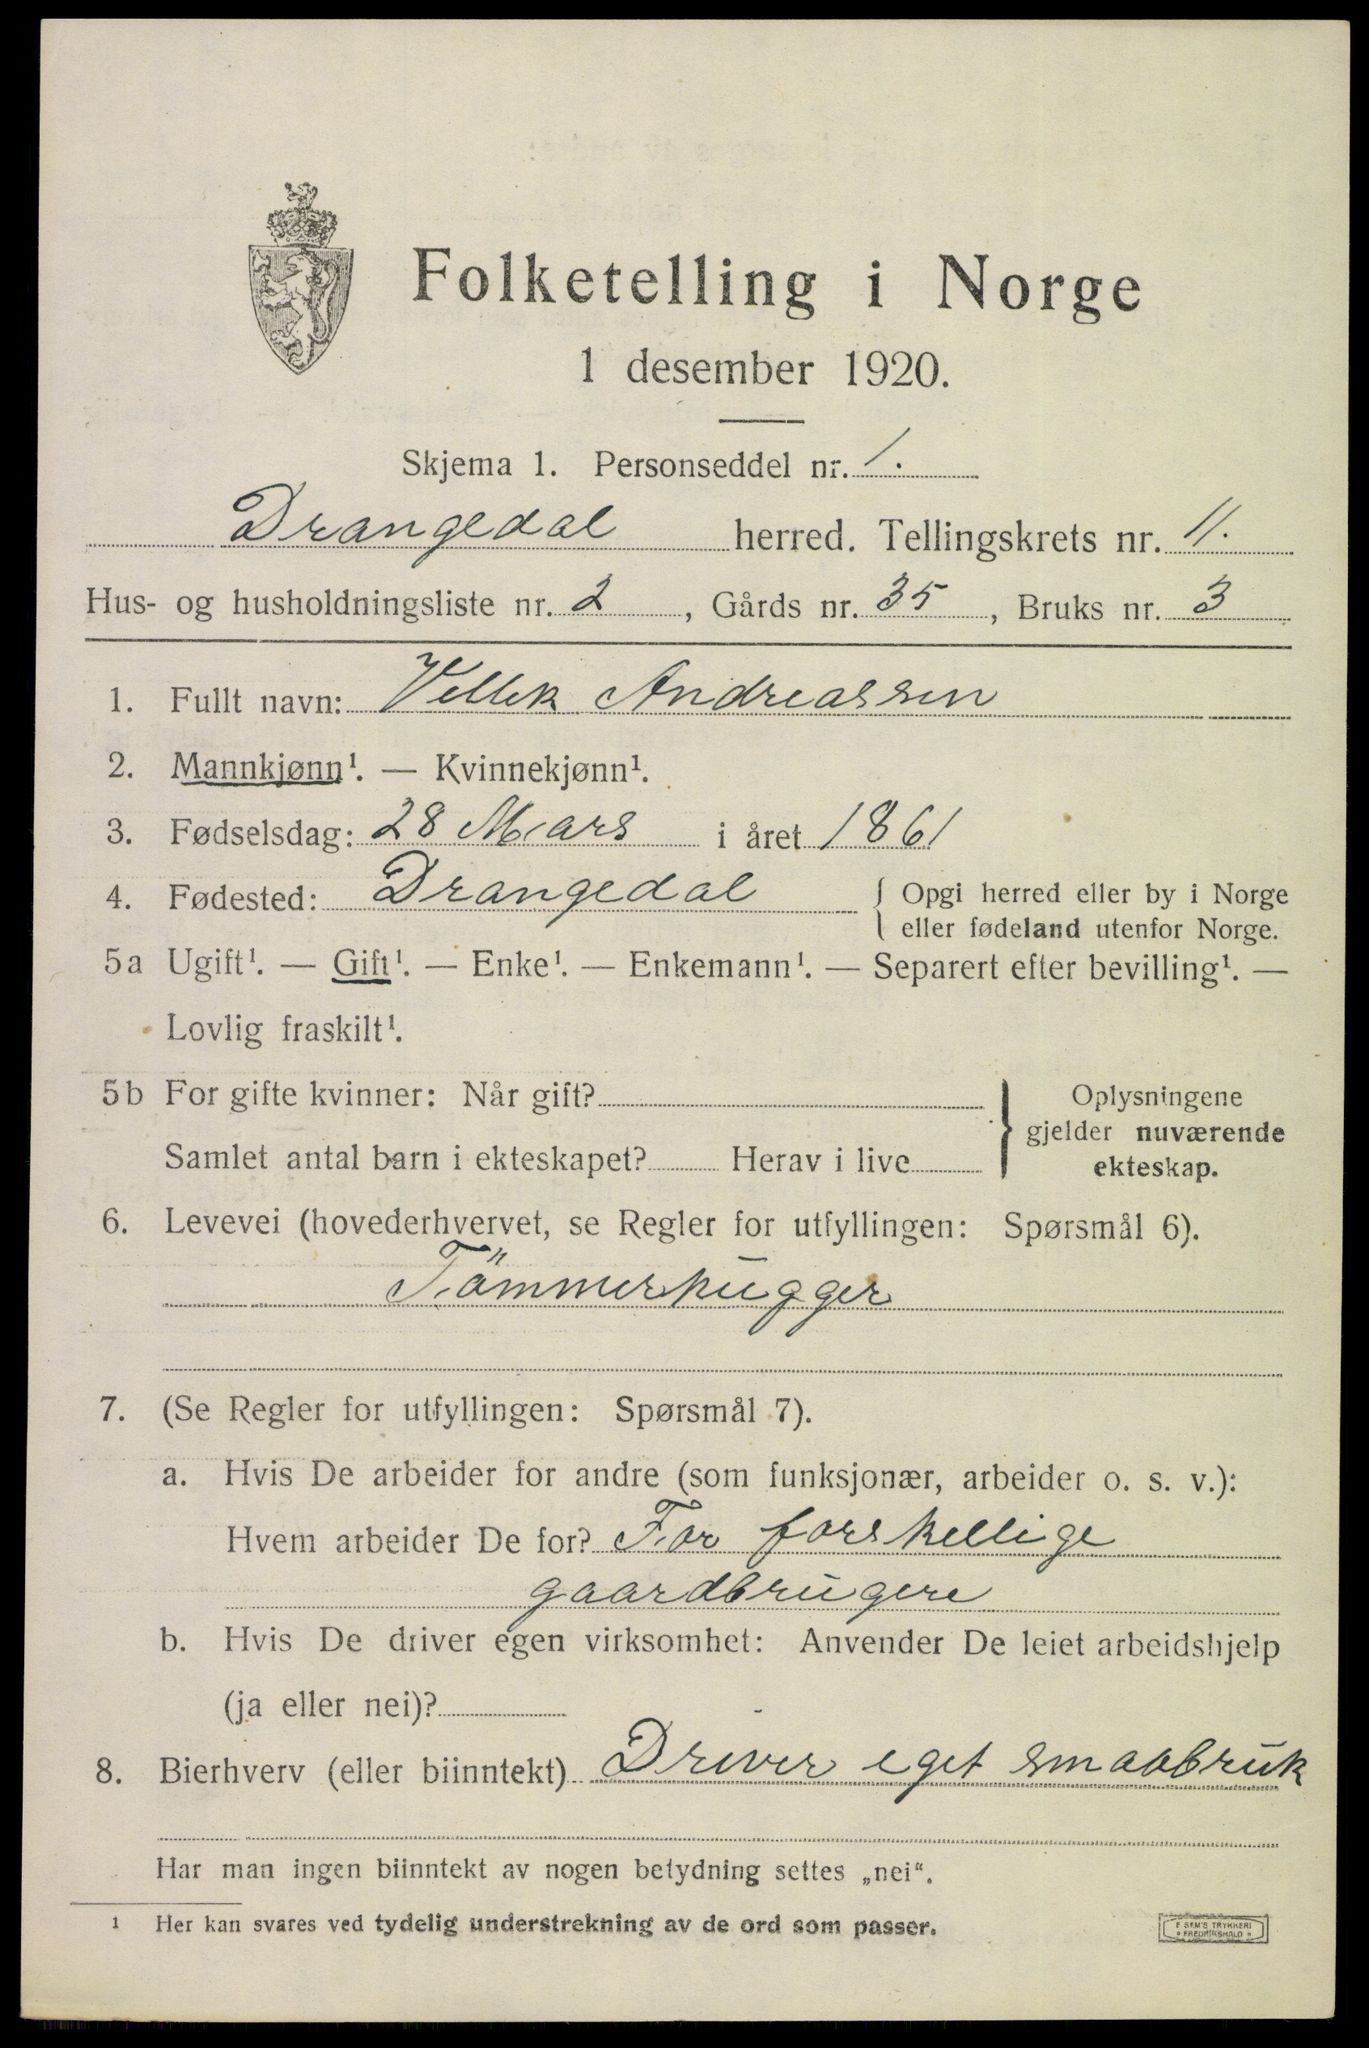 Folketelling i Norge
1 desember 1920.
Skjema 1. Personseddel nr. 1.
Drangedal herred. Tellingskrets nr. 11.
Hus- og husholdningsliste nr. 2, Gårds nr. 35, Bruks nr. 3
1. Fullt navn: Vellek Andreassen
2. Mannkjønn¹. — Kvinnekjønn¹.
3. Fødselsdag: 28 Mars i året 1861
4. Fødested: Drangedal { Opgi herred eller by i Norge
eller fødeland utenfor Norge.
5a Ugift¹. — Gift¹. — Enke¹. — Enkemann¹. — Separert efter bevilling¹. —
Lovlig fraskilt¹.
5b For gifte kvinner: Når gift?
Samlet antal barn i ekteskapet? Herav i live
} Oplysningene
gjelder nuværende
ekteskap.
6. Levevei (hovederhvervet, se Regler for utfyllingen: Spørsmål 6).
Tömmerhugger
7. (Se Regler for utfyllingen: Spørsmål 7).
a. Hvis De arbeider for andre (som funksjonær, arbeider o. s. v.):
Hvem arbeider De for? For forskellige
gaardbrugere
b. Hvis De driver egen virksomhet: Anvender De leiet arbeidshjelp
(ja eller nei)?
8. Bierhverv (eller biinntekt) Driver eget smaabruk
Har man ingen biinntekt av nogen betydning settes „nei“.
¹ Her kan svares ved tydelig understrekning av de ord som passer.
E SEM'S TRYKKERI
FREDRIKSHALD